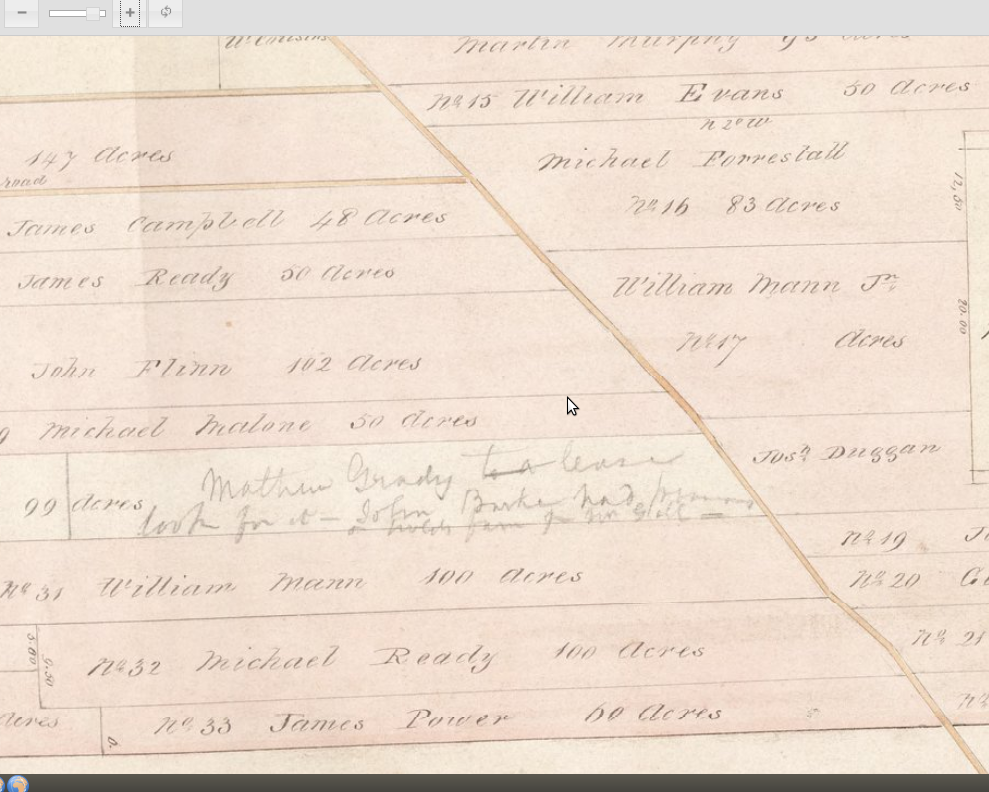 Martin Murphy 95 acres
No 15 William Evans 50 Acres
n 2° W
147 Acres
road
Michael Forrestall
No 16 83 Acres
12,50
James Campbell 48 Acres
James Ready 50 Acres
William Mann Jr
No 17 Acres
20.00
John Flinn 102 Acres
Michael Malone 50 Acres
Josh Duggan
99 Acres
Mathew Grady to a lease
look for it — John Burke had
No 19
No 20
No 31 William Mann 100 Acres
No 21
No 32 Michael Ready 100 Acres
5.00
9.50
Acres
No 33 James Power 60 Acres
No